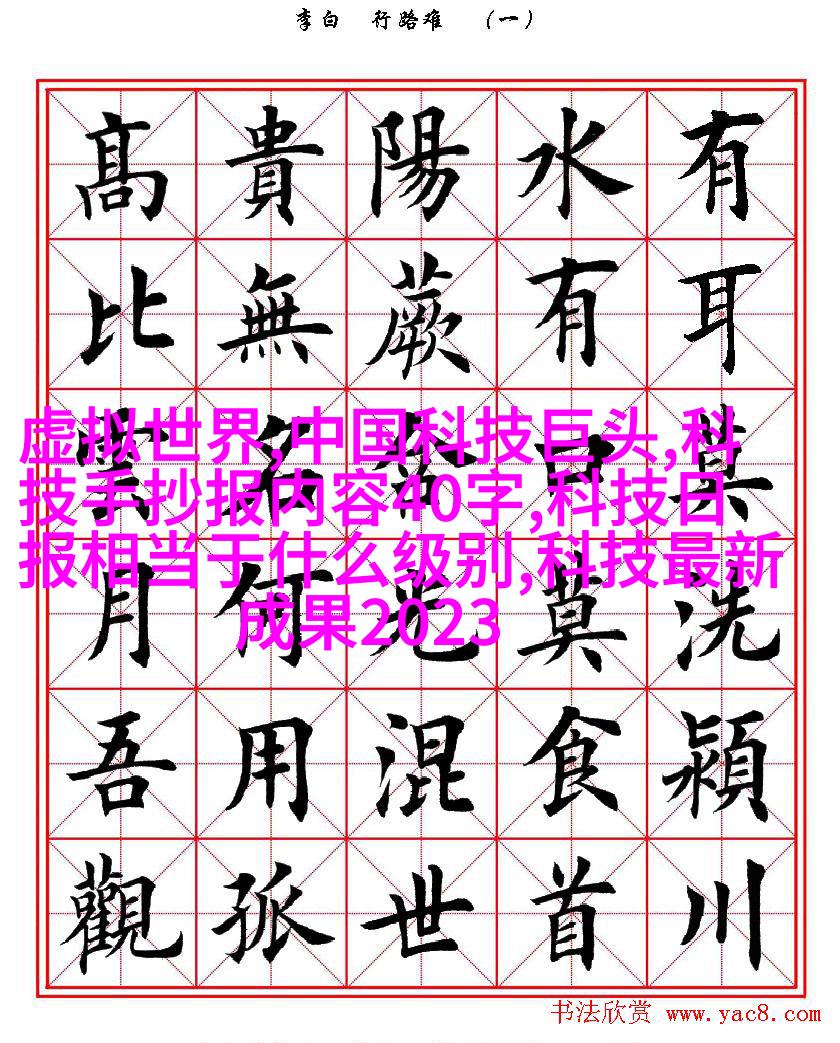 李白 行路难 （一）
有耳莫洗潁川
水有口莫食首
陽蕨含光混世
貴無名何用孤
髙比雲月吾觀
虚拟世界,中国科技巨头,科
技手抄报内容40字,科技日
报相当于什么级别,科技最新
成果2023
书法欣赏 www.yac8.com